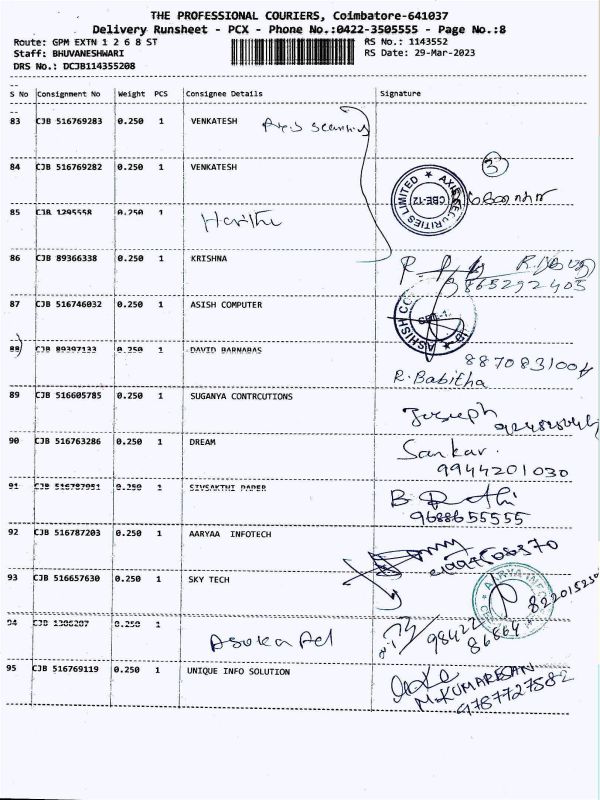 THE PROFESSIONAL COURIERS, Coimbatore-641037
Delivery Runsheet - PCX - Phone No.:0422-3505555 - Page No.:8
Route: GPM EXTN 1 2 6 8 ST RS No.: 1143552
Staff: BHUVANESHWARI RS Date: 29-Mar-2023
DRS No.: DCJB114355208
S No Consignment No Weight PCS Consignee Details Signature
83 CJB 516769283 0.250 1 VENKATESH
84 CJB 516769282 0.250 1 VENKATESH
3
AXIS SECURITIES LIMITED
CBE-12
85 CJB 1295558 0.250 1
86 CJB 89366338 0.250 1 KRISHNA
8865292405
87 CJB 516746032 0.250 1 ASISH COMPUTER
88 CJB 89397133 0.250 1 DAVID BARNABAS
8870831004
R. Babitha
89 CJB 516605785 0.250 1 SUGANYA CONTRCUTIONS
Joseph
90 CJB 516763286 0.250 1 DREAM
Sankar.
9944201030
91 CJB 516787951 0.250 1 SIVSAKTHI PAPER
9688655555
92 CJB 516787203 0.250 1 AARYAA INFOTECH
93 CJB 516657630 0.250 1 SKY TECH
94 CJB 1386287 0.250 1
98422
86864
95 CJB 516769119 0.250 1 UNIQUE INFO SOLUTION
M.KUMARESAN
9787727582